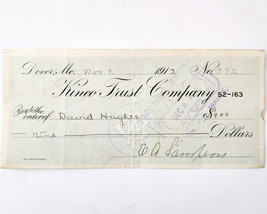 Dover, Me. Nov. 9 1912 No. 772
Kineo Trust Company 52-163
Pay to the order of David Hughes $9.00
Nine Dollars
E A Sampson